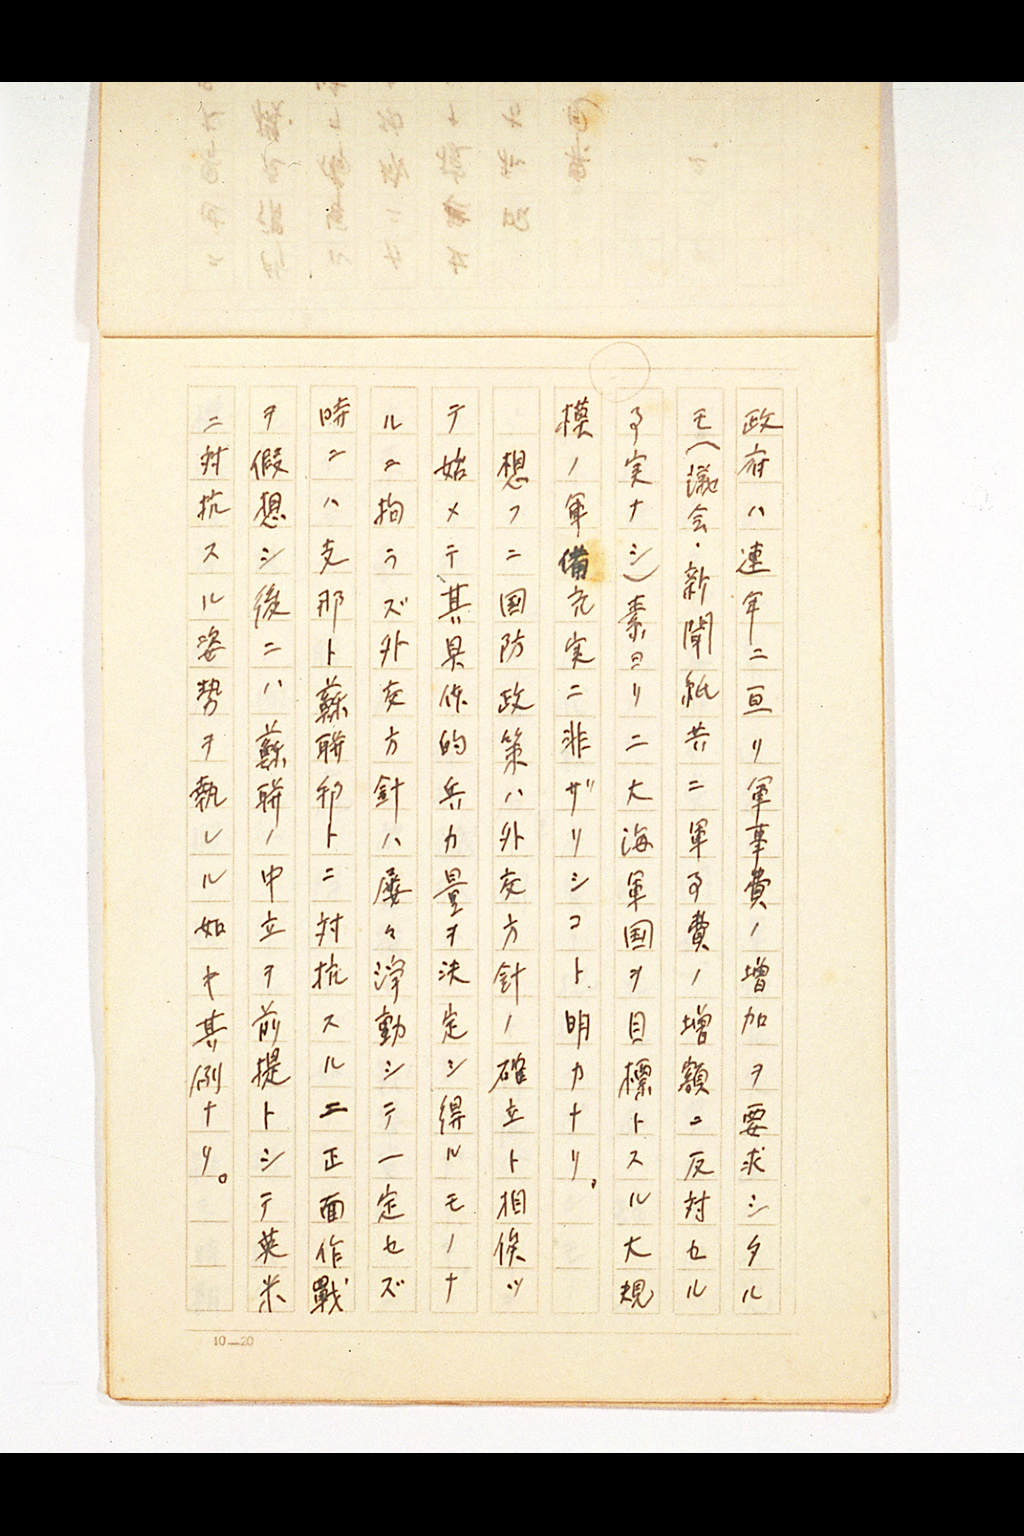 政府ハ連年ニ亘リ軍事費ノ増加ヲ要求シタル
モ(議会・新聞紙共ニ軍事費ノ増額ニ反対セル
事実ナシ)素ヨリ二大海軍国ヲ目標トスル大規
模ノ軍備充実ニ非ザリシコト明カナリ。
想フニ国防政策ハ外交方針ノ確立ト相俟ツ
テ始メテ其具体的兵力量ヲ決定シ得ルモノナ
ルニ拘ラズ外交方針ハ屡々浮動シテ一定セズ
時ニハ支那ト蘇聯邦トニ対抗スル二正面作戰
ヲ假想シ後ニハ蘇聯ノ中立ヲ前提トシテ英米
ニ対抗スル姿勢ヲ執レル如キ其例ナリ。
10—20